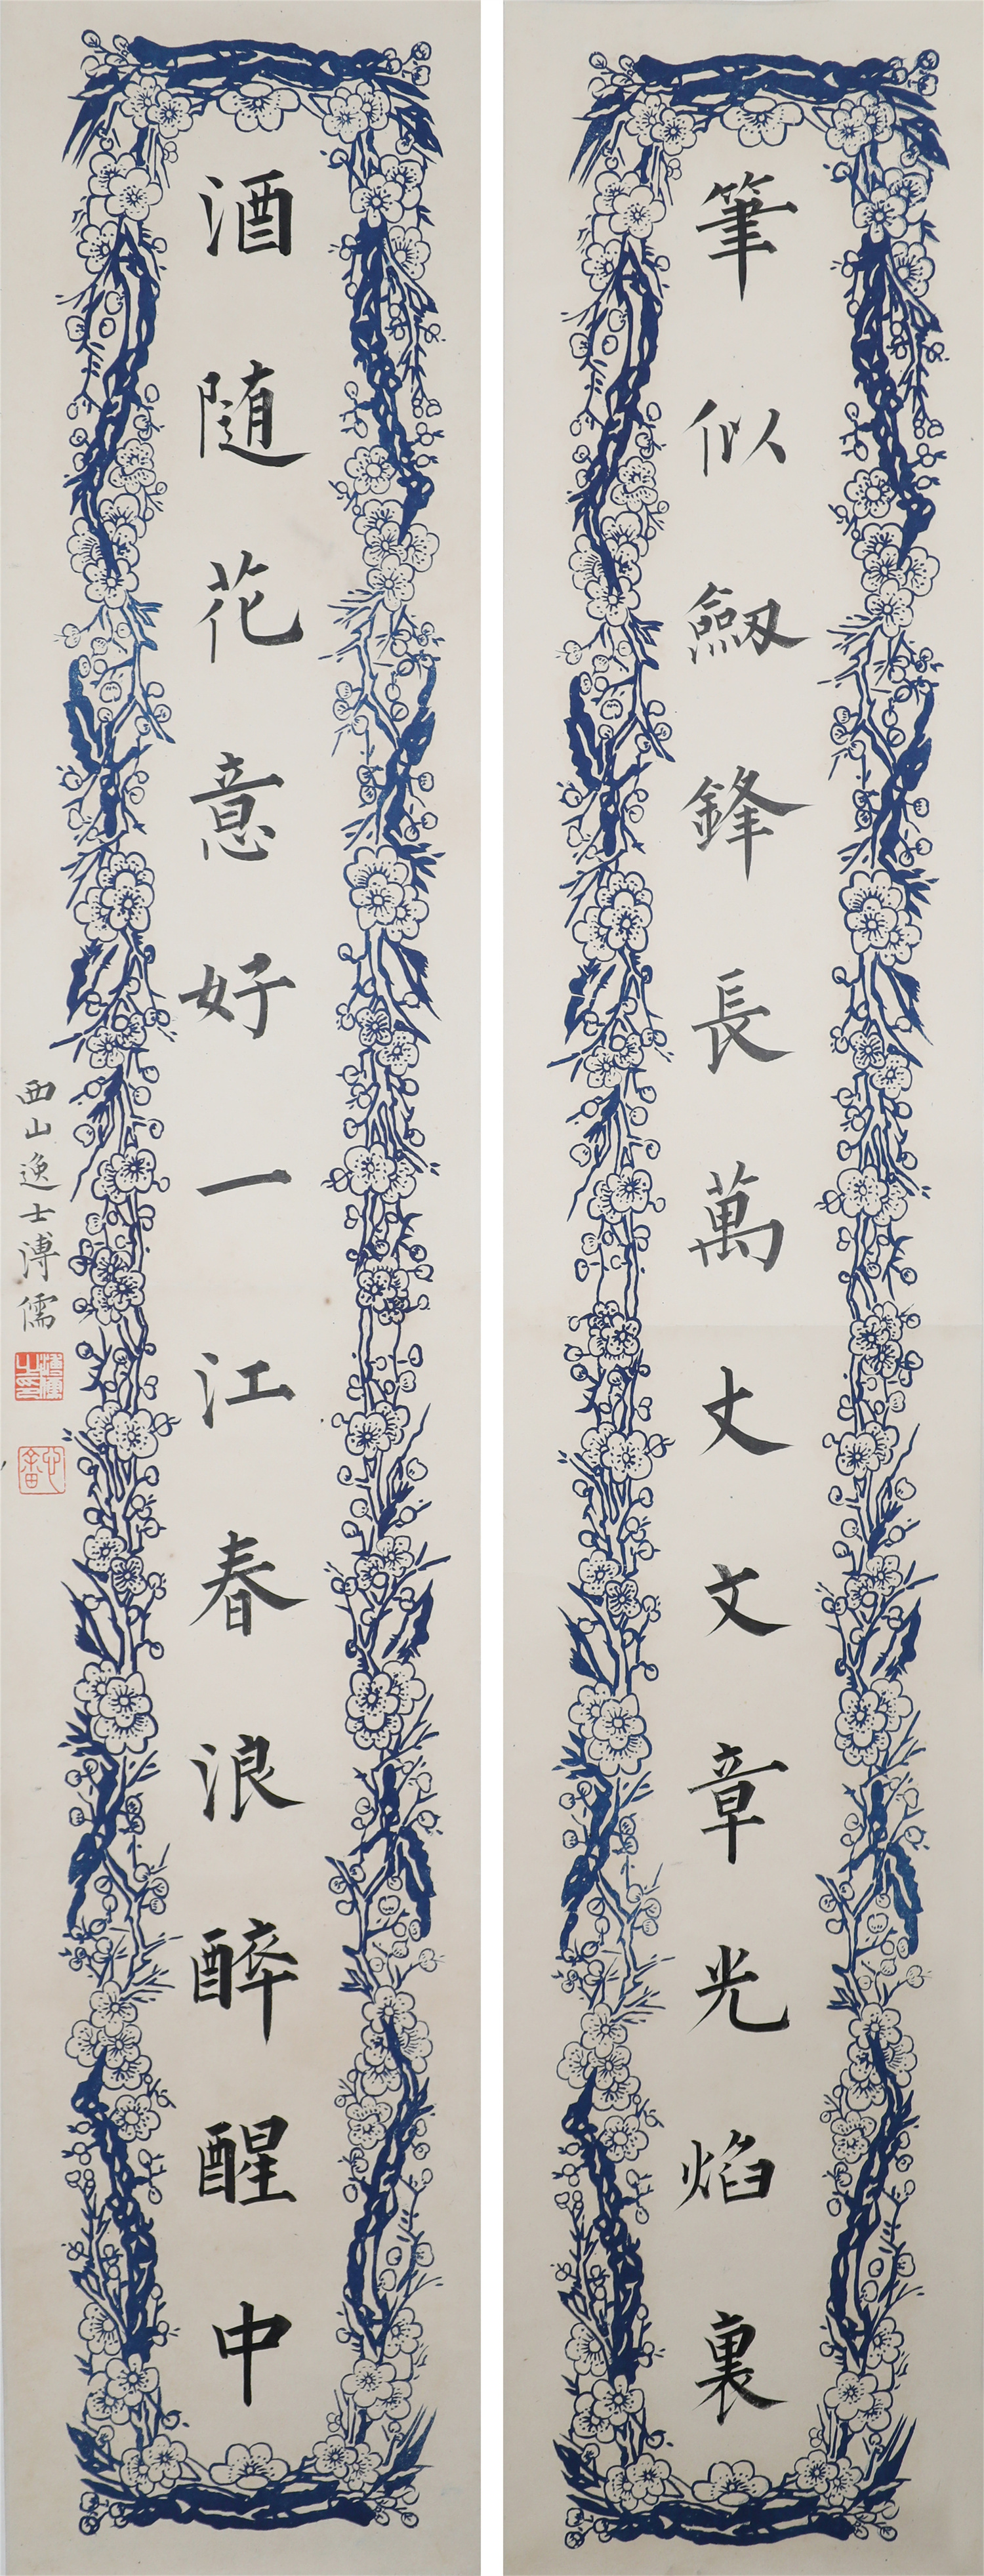 筆似劔鋒長萬丈文章光焰裏
酒随花意好一江春浪醉醒中
西山逸士溥儒